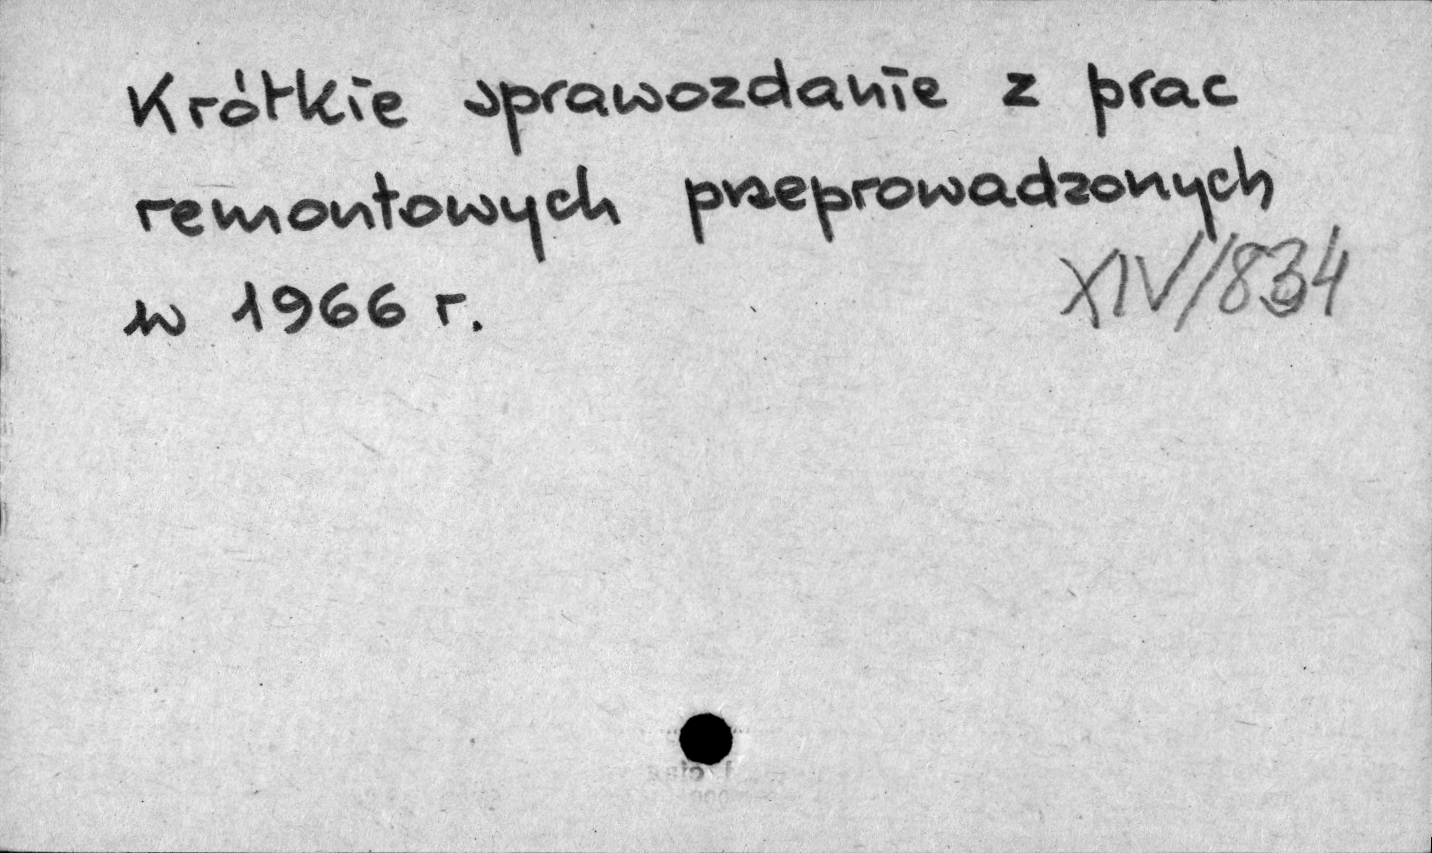 Krótkie sprawozdanie z prac
remontowych przeprowadzonych
w 1966 r.
XIV/834